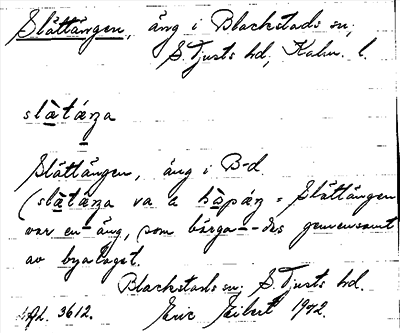 Slåttängen, äng i Blackstads sn;
S. Tjusts hd, Kalm. l.
slàtáŋa
Slåttängen, äng i B-d
(slàtáŋa va a hòpáŋ = Slåttängen
var en äng, som bärga--des gemensamt
av byalaget.
Blackstads sn; S. Tjusts hd.
3612. Eric 1942.